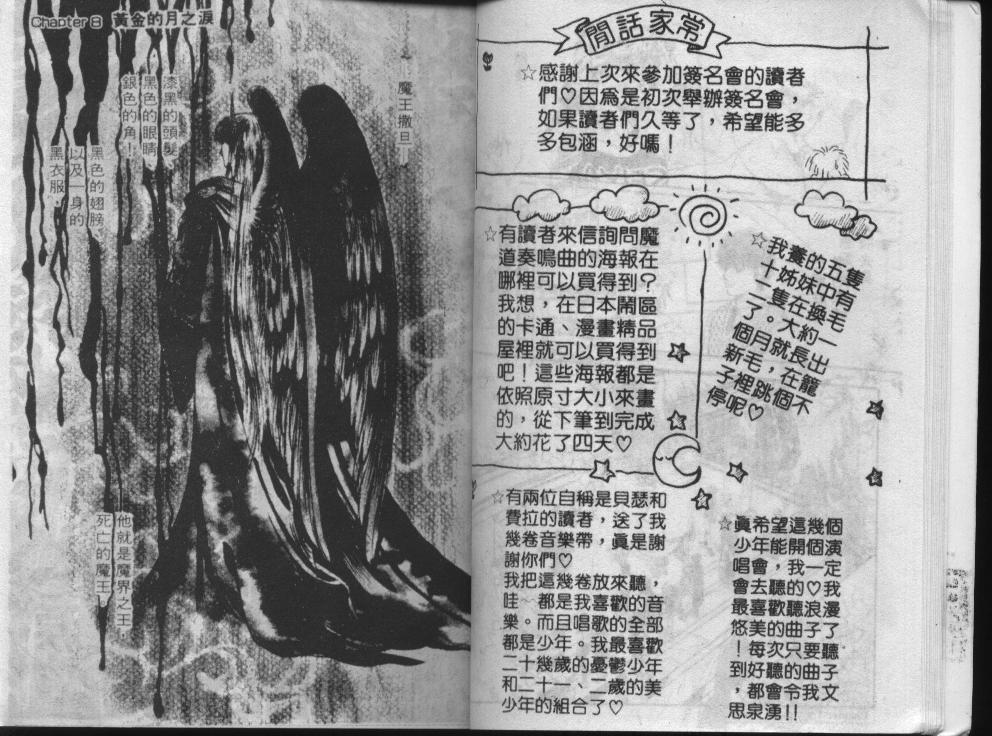 Chapter 8 黃金的月之淚
魔王撒旦—
漆黑的頭髮、
黑色的眼睛、
銀色的角！
黑色的翅膀
以及一身的
黑衣服，
他就是魔界之王，
死亡的魔王—
閒話家常
☆感謝上次來參加簽名會的讀者
們♡因為是初次舉辦簽名會，
如果讀者們久等了，希望能多
多包涵，好嗎！
☆有讀者來信詢問魔
道奏鳴曲的海報在
哪裡可以買得到？
我想，在日本鬧區
的卡通、漫畫精品
屋裡就可以買得到
吧！這些海報都是
依照原寸大小來畫
的，從下筆到完成
大約花了四天♡
☆我養的五隻
十姊妹中有
二隻在換毛
了。大約一
個月就長出
新毛，在籠
子裡跳個不
停呢♡
☆有兩位自稱是貝瑟和
費拉的讀者，送了我
幾卷音樂帶，眞是謝
謝你們♡
我把這幾卷放來聽，
哇~都是我喜歡的音
樂。而且唱歌的全部
都是少年。我最喜歡
二十幾歲的憂鬱少年
和二十一、二歲的美
少年的組合了♡
☆眞希望這幾個
少年能開個演
唱會，我一定
會去聽的♡我
最喜歡聽浪漫
悠美的曲子了
！每次只要聽
到好聽的曲子
，都會令我文
思泉湧!!